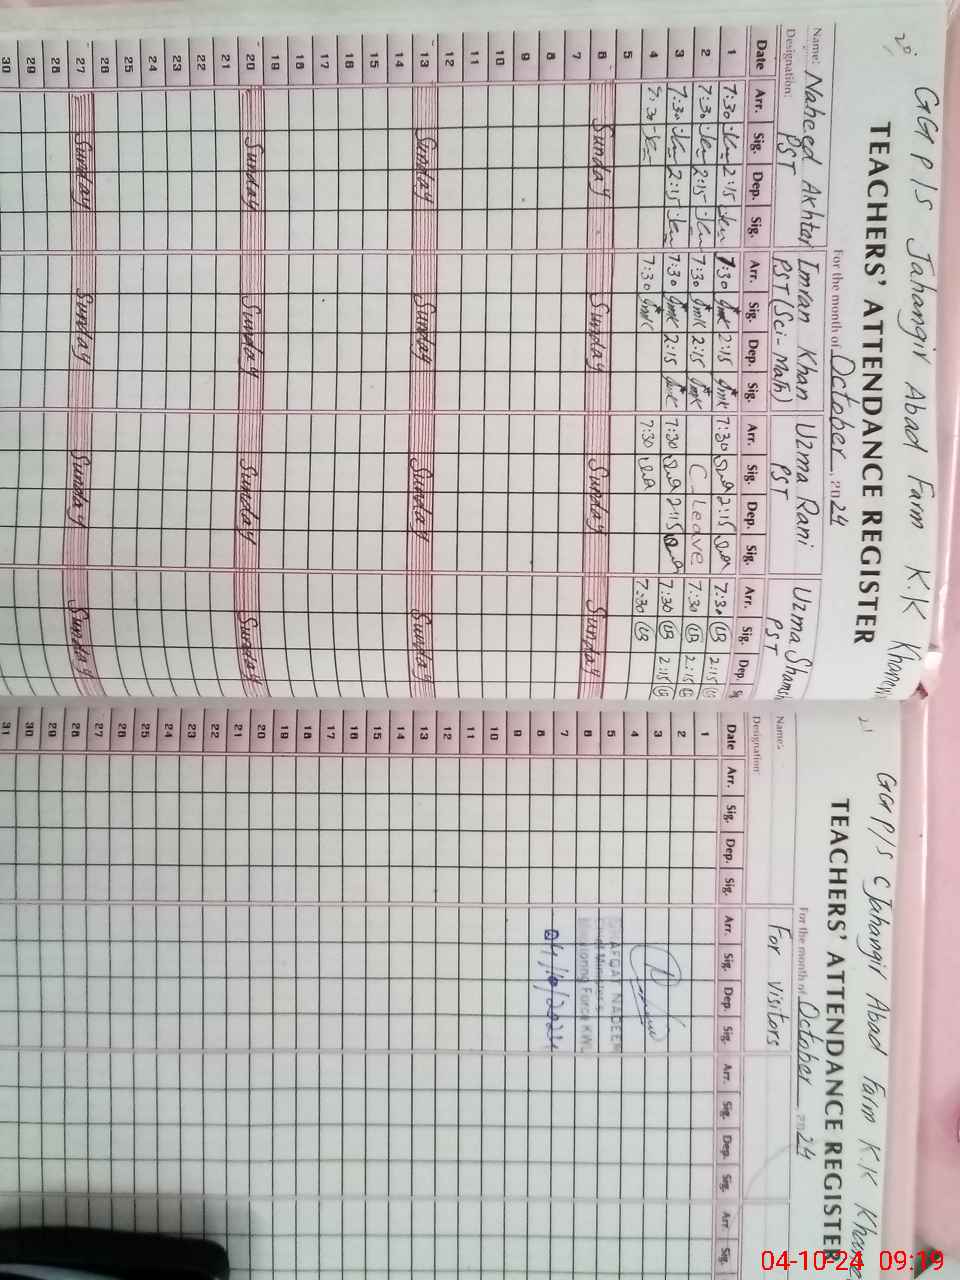 20
GGP/S Jahangir Abad Farm K.K
TEACHERS' ATTENDANCE REGISTER
For the month of October, 2024
Name: Naheed Akhtar Imran Khan Uzma Rani Uzma
Designation: PST PST (Sci-Math) PST PST
Date Arr. Sig. Dep. Sig. Arr. Sig. Dep. Sig. Arr. Sig. Dep. Sig. Arr. Sig. Dep.
1 7:30 2:15 7:30 2:15 7:30 2:15 7:30 2:15
2 7:30 2:15 7:30 2:15 C Leave 7:30 2:15
3 7:30 2:15 7:30 2:15 7:30 2:15 7:30 2:15
4 7:30 7:30 7:30 7:30
5
6 Sunday Sunday Sunday Sunday
7
8
9
10
11
12
13 Sunday Sunday Sunday Sunday
14
15
16
17
18
19
20 Sunday Sunday Sunday Sunday
21
22
23
24
25
26
27 Sunday Sunday Sunday Sunday
28
29
30
21
GGP/S Jahangir Abad Farm K.K
TEACHERS' ATTENDANCE REGISTER
For the month of October, 2024
Name: For visitors
Designation:
Date Arr. Sig. Dep. Sig. Arr. Sig. Dep. Sig. Arr. Sig. Dep. Sig. Arr. Sig.
1
2
3
4
5 NADEEM
6 Force
7
8 04/10/2024
9
10
11
12
13
14
15
16
17
18
19
20
21
22
23
24
25
26
27
28
29
30
31
04-10-24 09:19